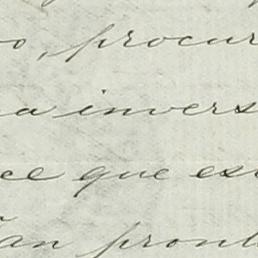 o, procur
a invers
ce que es
an pront